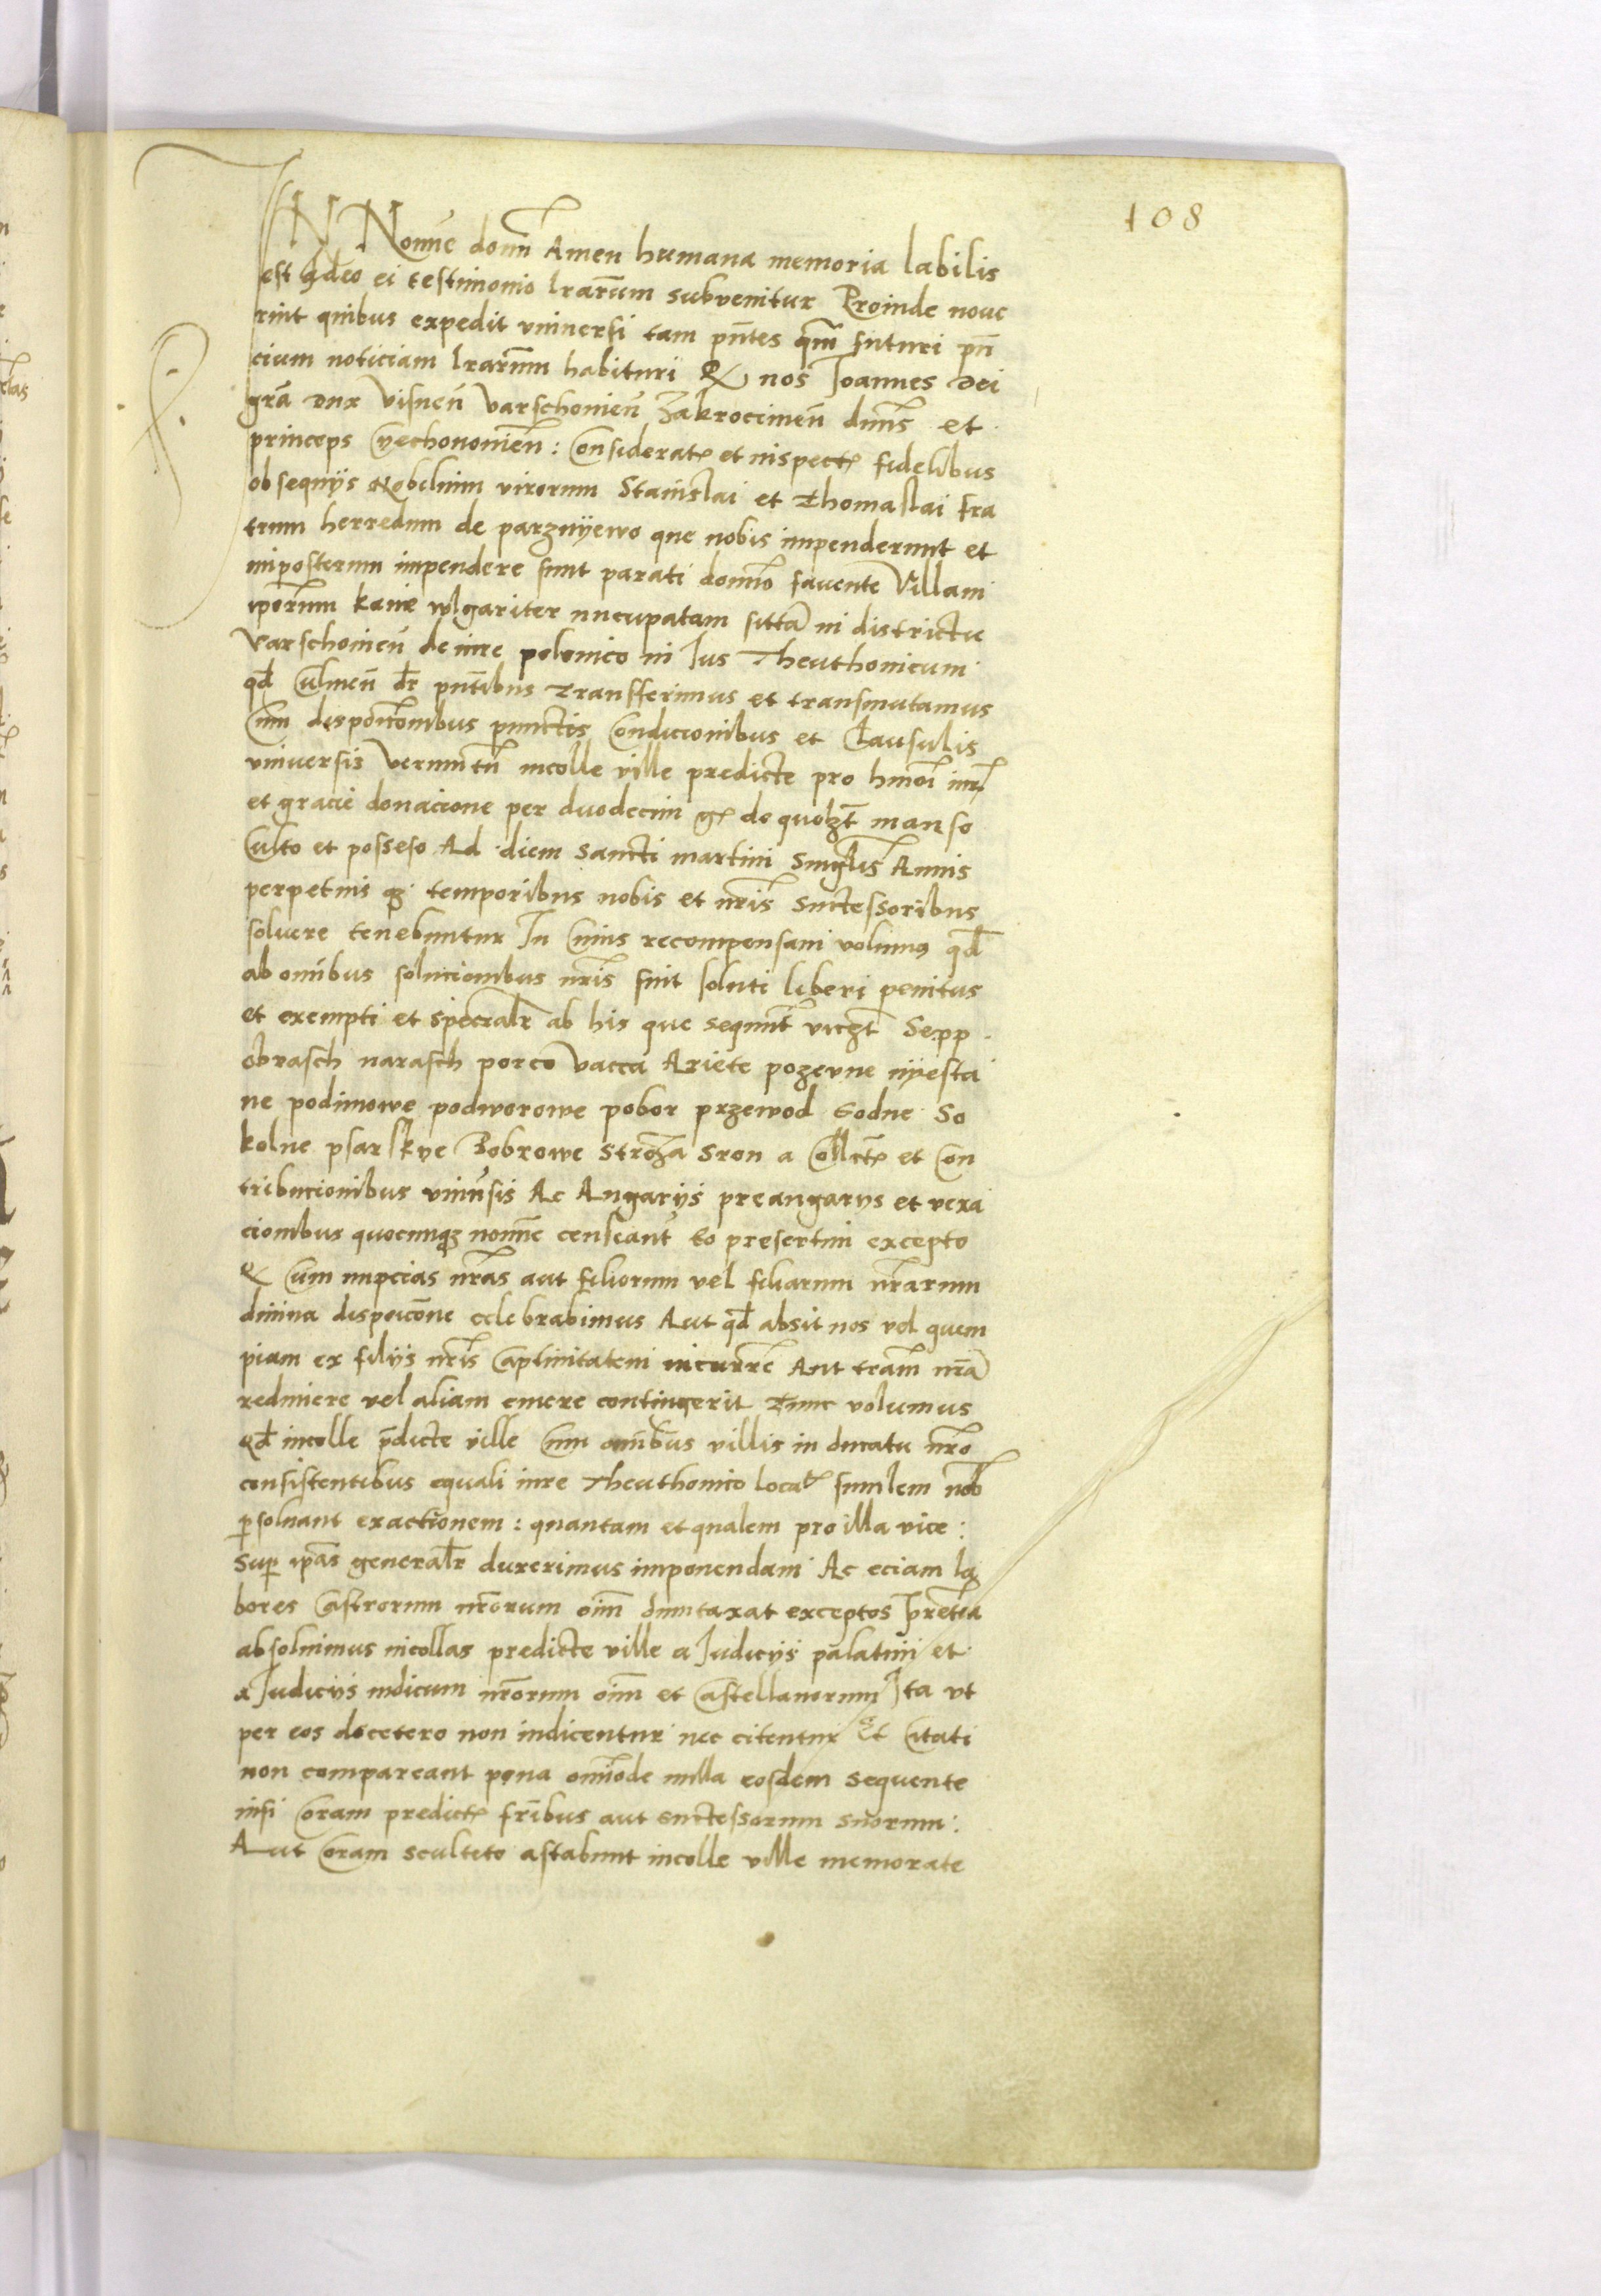 108
IN Nomīe domī Amen humana memoria labilis
est Ideo ei testimonio lrarum subvenitur Proinde noue
rint quibus expedit vniuersi tam pn̄tes qm̄ futuri pn̄
cium noticiam lrarum habituri Q nos Joannes Dei
grā Dux Visnen̄ Varschouien̄ Zakroczimen̄ dnūs et
princeps Czechonouien̄: Considerat et inspect fidelibus
obsequijs Nobilium virorum Stanislai et Thomaslai fra
trum herredum de parznijewo que nobis impenderunt et
inposterum impendere sunt parati domīo fauente Villam
ipōrum kanie wlgariter nucupatam sittā in districtu
Varschouien̄ de iure polonico in Jus Theuthonicum
qd Culmen̄ dr pn̄tibus Transfferimus et transmutamus
Cum disponc̄onibus punctis Condicionibus et Clausulis
vniuersis Verumtn̄ incolle ville predicte pro hmōi iur
et gracie donacione per duodecim g de quolzt manso
Culto et posseso Ad diem Sancti martini Singlis Annis
perpetuis qz temporibus nobis et nr̄is Suctessoribus
soluere tenebuntur In Cuius recompensam volumus qd
ab omībus soluciombus nr̄is sint soluti liberi penitus
et exempti et specialr ab his que sequunt̄ viczt Sepp
obrasch narasch porco Vacca Ariete pozevne nijesta
ne podimowe podworowe pobor przewod Godne So
kolne psarskye Bobrowe Stroza Sron a Collect et Con
tribucionibus vniūsis Ac Angarijs preangarys et vexa
ciombus quocumqz nomīe censeant̄ Eo presertim excepto
Q Cum nupcias nr̄as aut filiorum vel filiarum nr̄arum
diuina dispoicōne celebrabimus Aut qd absit nos vel quem
piam ex filijs nr̄is Captiuitatem incurre Aut tram nr̄ā
redimere vel aliam emere contingerit Tunc volumus
Qd incolle p̄dicte ville Cum omībus villis in ducatu nr̄o
consistentibus equali iure Theuthonico locat similem nob
psoluant exactionem: quantam et qualem pro illa vice:
Sup ipas generalr duxerimus imponendam Ac eciam la
bores Castrorum nr̄orum oīm dumtaxat exceptos Pretēa
absoluimus incollas predicte ville a Judicijs palatini et
a Judicijs iudicum nr̄orum oīm et Castellanorum Ita vt
per eos decetero non iudicentur nec citentur Et Citati
non compareant pena omīode nulla eosdem sequente
nisi Coram predict frībus aut suctessorum suorum:
Aut Coram sculteto astabunt incolle ville memorate